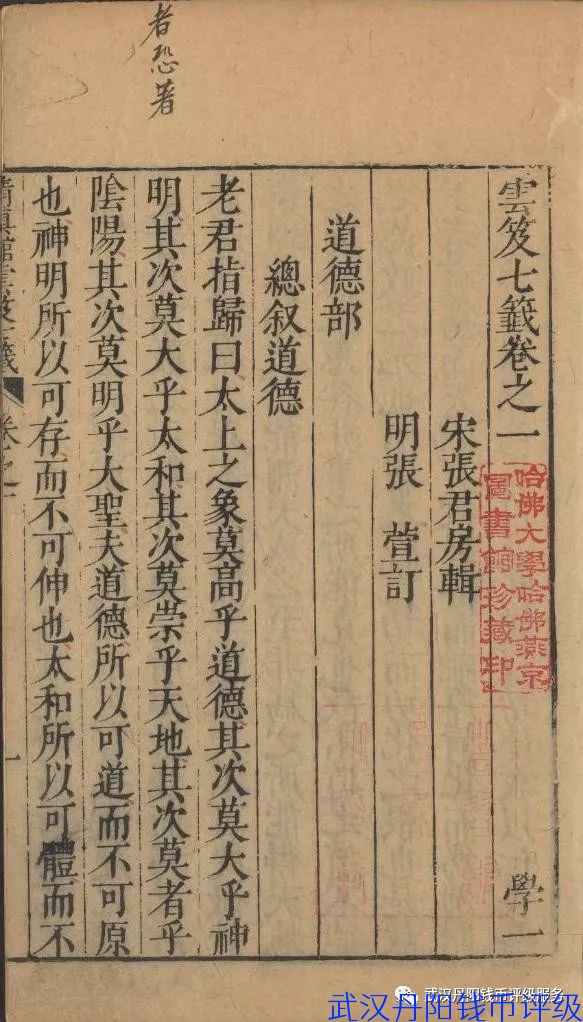 者恐著
雲笈七籤卷之一 學一
哈佛大學哈佛燕京
圖書館珍藏印
宋張君房輯
明張 萱訂
道德部
總叙道德
老君指歸曰太上之象莫高乎道德其次莫大乎神
明其次莫大乎太和其次莫崇乎天地其次莫者乎
陰陽其次莫明乎大聖夫道德所以可道而不可原
也神明所以可存而不可伸也太和所以可體而不
武汉丹阳钱币评级服务
武汉丹阳钱币评级